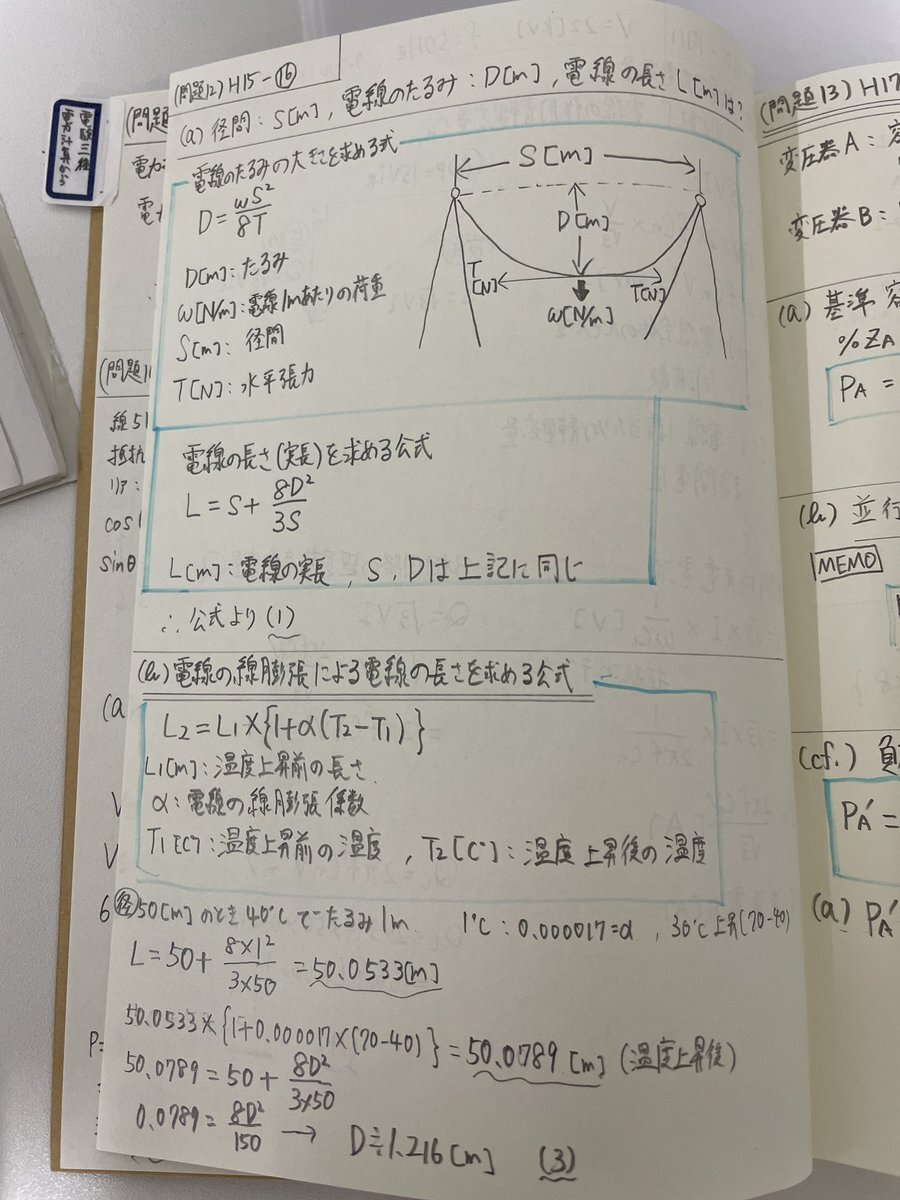 (問題12) H15-⑯
(a) 径間: S[m], 電線のたるみ: D[m], 電線の長さ L[m]は?
電線のたるみの大きさを求める式
D = wS²/8T
D[m]: たるみ
w[N/m]: 電線1mあたりの荷重
S[m]: 径間
T[N]: 水平張力
S[m]
D[m]
T[N]
T[N]
w[N/m]
電線の長さ(実長)を求める公式
L = S + 8D²/3S
L[m]: 電線の実長, S, Dは上記に同じ
∴ 公式より (1)
(b) 電線の線膨張による電線の長さを求める公式
L₂ = L₁×{1+α(T₂-T₁)}
L₁[m]: 温度上昇前の長さ
α: 電線の線膨張係数
T₁[C°]: 温度上昇前の温度, T₂[C°]: 温度上昇後の温度
径50[m]のとき40℃でたるみ1m 1℃: 0.000017=α, 30℃上昇(70-40)
L = 50 + 8×1²/3×50 = 50.0533[m]
50.0533×{1+0.000017×(70-40)} = 50.0789[m] (温度上昇後)
50.0789 = 50 + 8D²/3×50
0.0789 = 8D²/150 → D≒1.216[m] (3)
電験三種
電力計算から
(問題
電力
電
(問題1
線51
抵抗
リア:
cos
sinθ
(a
V
V
6
P=
(問題13) H17
変圧器A: 容
変圧器B:
(a) 基準容
%ZA
PA =
(b) 並行
MEMO
(cf.) 負
PA' =
(a) PA'